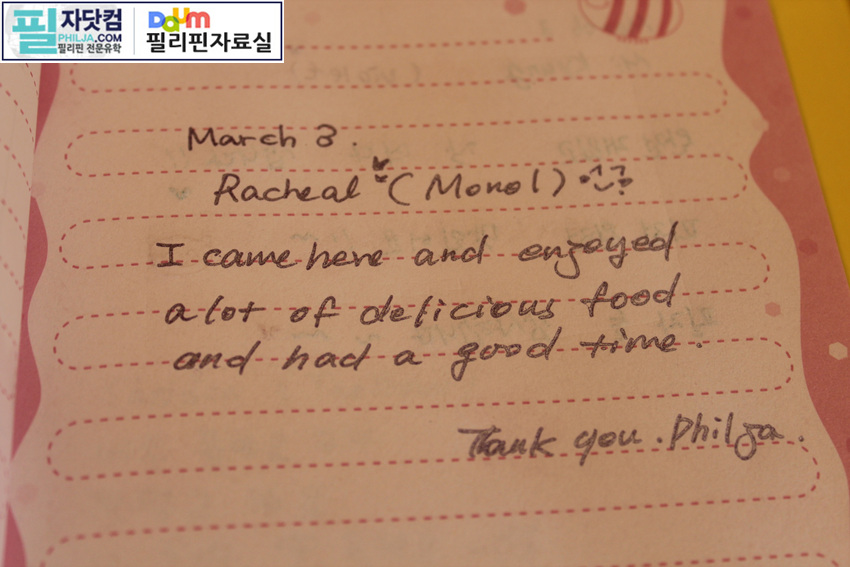 필 자닷컴
PHILJA.COM
필리핀 전문유학
Daum
필리핀자료실
March 3.
Racheal (Monol)
I came here and enjoyed
a lot of delicious food
and had a good time.
Thank you. Philja.